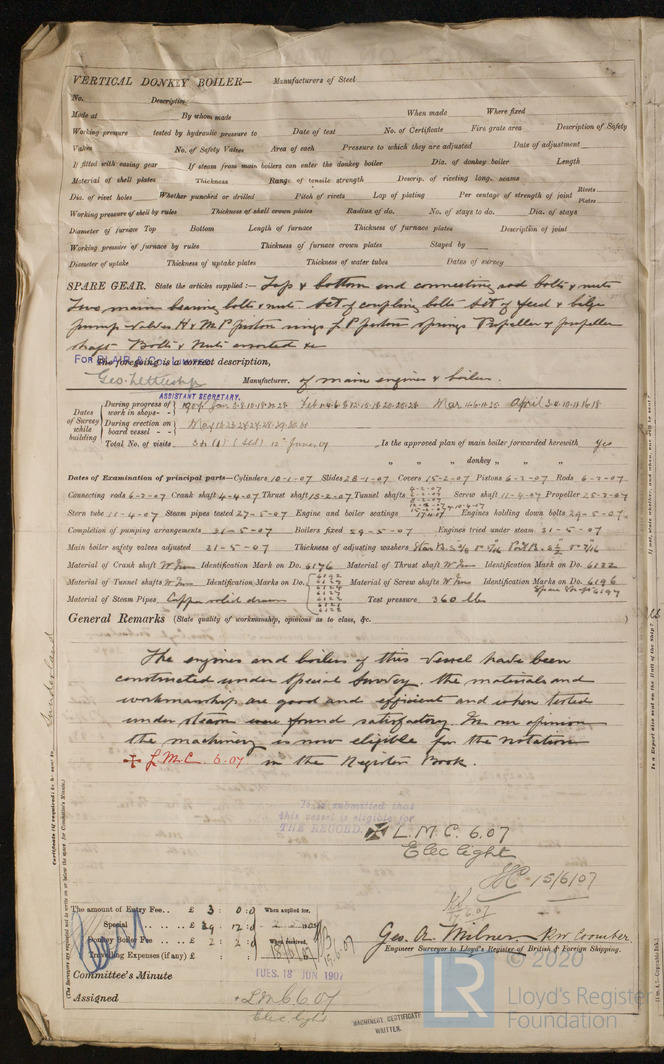 VERTICAL DONKEY BOILER— Manufacturers of Steel
No. Description
Made at By whom made When made Where fixed
Working pressure tested by hydraulic pressure to Date of test No. of Certificate Fire grate area Description of Safety
Valves No. of Safety Valves Area of each Pressure to which they are adjusted Date of adjustment
If fitted with easing gear If steam from main boilers can enter the donkey boiler Dia. of donkey boiler Length
Material of shell plates Thickness Range of tensile strength Descrip. of riveting long. seams
Dia. of rivet holes Whether punched or drilled Pitch of rivets Lap of plating Per centage of strength of joint Rivets Plates
Working pressure of shell by rules Thickness of shell crown plates Radius of do. No. of stays to do. Dia. of stays
Diameter of furnace Top Bottom Length of furnace Thickness of furnace plates Description of joint
Working pressure of furnace by rules Thickness of furnace crown plates Stayed by
Diameter of uptake Thickness of uptake plates Thickness of water tubes Dates of survey
SPARE GEAR. State the articles supplied:— Top & bottom end connecting rod bolts & nuts
Two main bearing bolts & nuts Set of coupling bolts Set of feed & bilge
pump valves H & M P piston rings L P piston springs Propeller & propeller
shaft Bolts & Nuts assorted &c
FOR BLAIR & CO. LIMITED
The foregoing is a correct description,
Manufacturer. of main engines & boilers.
ASSISTANT SECRETARY.
Dates of Survey while building
During progress of work in shops - - 1907 Jan 3.8.10.18.21.28 Feb Mar April 3.4.10.11.16.18
During erection on board vessel - - - May
Total No. of visits 12th June 07 Is the approved plan of main boiler forwarded herewith Yes
" " " donkey " "
Dates of Examination of principal parts—Cylinders 10-1-07 Slides 28-1-07 Covers 15-2-07 Pistons 6-2-07 Rods 6-2-07
Connecting rods 6-2-07 Crank shaft 4-4-07 Thrust shaft 18-2-07 Tunnel shafts Screw shaft 11-4-07 Propeller 25-3-07
Stern tube 11-4-07 Steam pipes tested 27-5-07 Engine and boiler seatings 17-4-07 Engines holding down bolts 29-5-07
Completion of pumping arrangements 31-5-07 Boilers fixed 29-5-07 Engines tried under steam 31-5-07
Main boiler safety valves adjusted 31-5-07 Thickness of adjusting washers
Material of Crank shaft W Iron Identification Mark on Do. 6176 Material of Thrust shaft W Iron Identification Mark on Do. 6122
Material of Tunnel shafts W Iron Identification Marks on Do. Material of Screw shafts W Iron Identification Marks on Do. 6196
Spare 6197
Material of Steam Pipes Copper solid drawn Test pressure 360 lbs
General Remarks (State quality of workmanship, opinions as to class, &c.)
The engines and boilers of this vessel have been
constructed under Special Survey, the materials and
workmanship are good and efficient and when tested
under steam were found satisfactory. In our opinion
the machinery is now eligible for the notation
✠ L.M.C. 6.07 in the Register Book.
It is submitted that
this vessel is eligible for
THE RECORD. ✠ L.M.C. 6.07
Elec light
15/6/07
The amount of Entry Fee.. £ 3 : 0 : 0 When applied for,
Special £ 29 : 12 : 0
Donkey Boiler Fee £ 2 : 2 : 0 When received,
Travelling Expenses (if any) £ : :
18/6/07
Geo. A. Milner
Engineer Surveyor to Lloyd's Register of British & Foreign Shipping.
Committee's Minute TUES. 18 JUN 1907
Assigned + LMC 6.07
Elec. light
MACHINERY CERTIFICATE WRITTEN.
Sunderland
Certificate (if required) to be sent to
(The Surveyors are requested not to write on or below the space for Committee's Minute.)
© 2020
LR
Lloyd's Register
Foundation